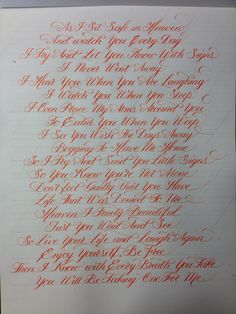 As I Sit Safe in Heaven
And watch You Every Day
I Try And Let You Know With Signs
I Never Went Away
I Hear You When You Are Laughing
I Watch You When You Sleep
I Even Place My Arms Around You
To Calm You When You Weep
I See You Wish The Days Away
Begging To Have Me Home
So I Try And Send You Little Signs
So You Know You're Not Alone
Don't feel Guilty that You Have
Life That Was Denied To Me
Heaven I Truly Beautiful
Just You Wait And See
So Live Your Life and Laugh Again
Enjoy Yourself, Be Free
Then I Know with Every Breath You Take
You Will Be Taking One For Me